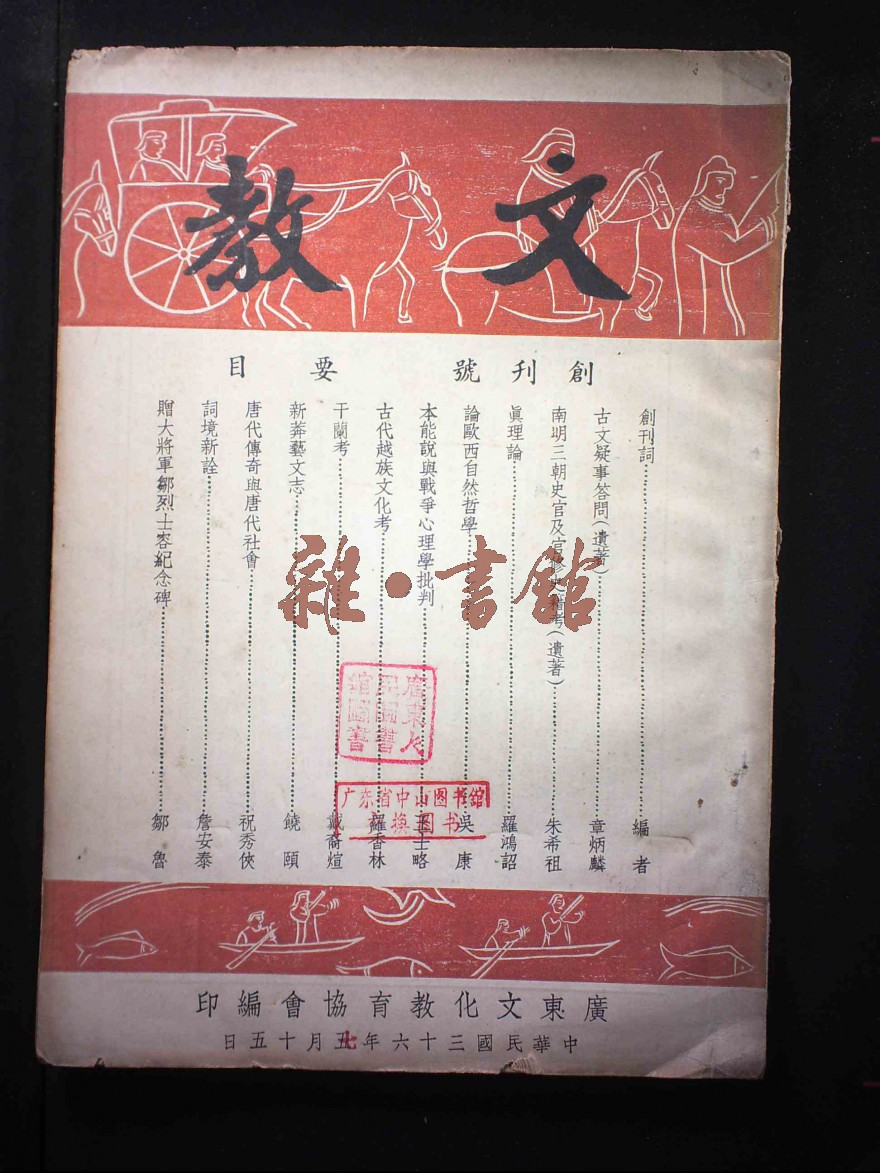 文教
創刊號 要目
創刊詞 編者
古文疑事答問(遺著) 章炳麟
南明三朝史官及官修史籍考(遺著) 朱希祖
眞理論 羅鴻詔
論歐西自然哲學 吳康
本能說與戰爭心理學批判 王士略
古代越族文化考 羅香林
干蘭考 戴裔煊
新莽藝文志 饒頤
唐代傳奇與唐代社會 祝秀俠
詞境新詮 詹安泰
贈大將軍鄒烈士容紀念碑 鄒魯
雜·書館
廣東人
民圖書
館圖書
广东省中山图书馆
换图书
廣東文化教育協會編印
中華民國三十六年七月十五日